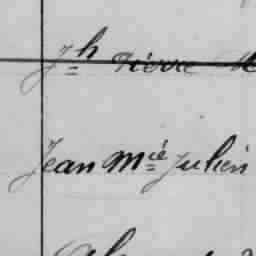 Jh Pierre
Jean Mcié Julien